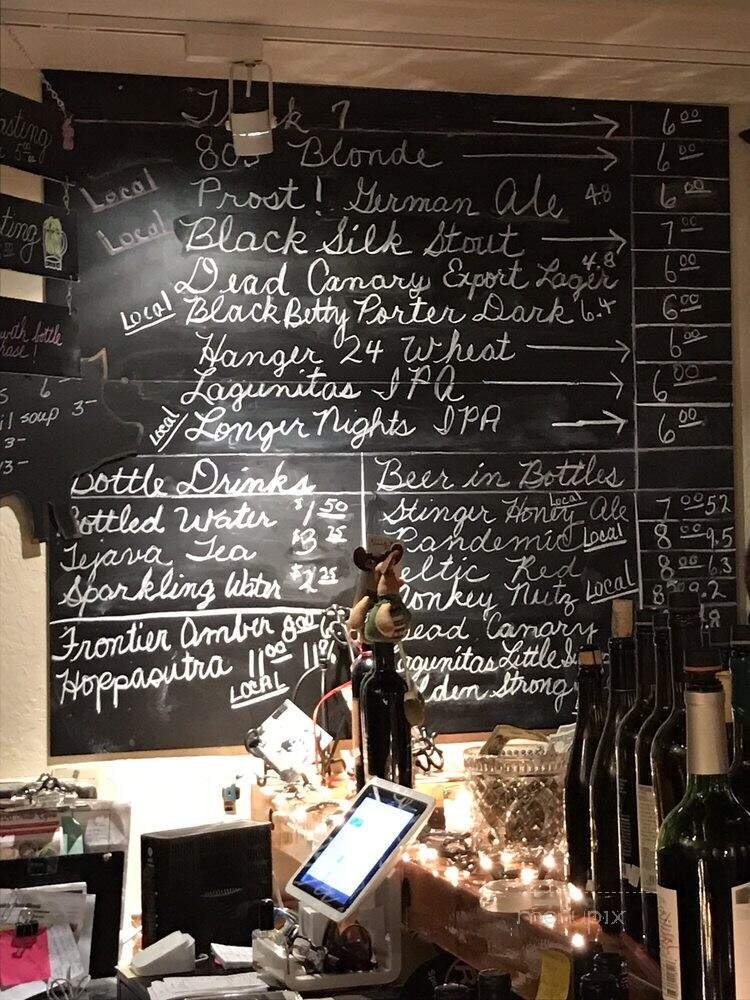 asting
5.00
ting
with bottle
hase!
S 6-
il soup 3-
3-
13-
7 → 6.00
805 Blonde → 6.00
Local Prost! German Ale 4.8 6.00
Local Black Silk Stout → 7.00
Dead Canary Export Lager 4.8 6.00
Local Black Betty Porter Dark 6.4 6.00
Hanger 24 Wheat → 6.00
Lagunitas IPA → 6.00
Local Longer Nights IPA → 6.00
Bottle Drinks
Bottled Water $1.50
Tejava Tea $3.25
Sparkling Water $2.25
Frontier Amber 8.00
Hoppasutra 11.00 11%
LOCAL
Beer in Bottles
Stinger Honey Ale Local 7.00 5.2
Pandemic Local 8.00 9.5
eltic Red 8.00 6.3
Monkey Nutz Local 8.00 9.2
ead Canary .8
agunitas Little
lden Strong
menupix